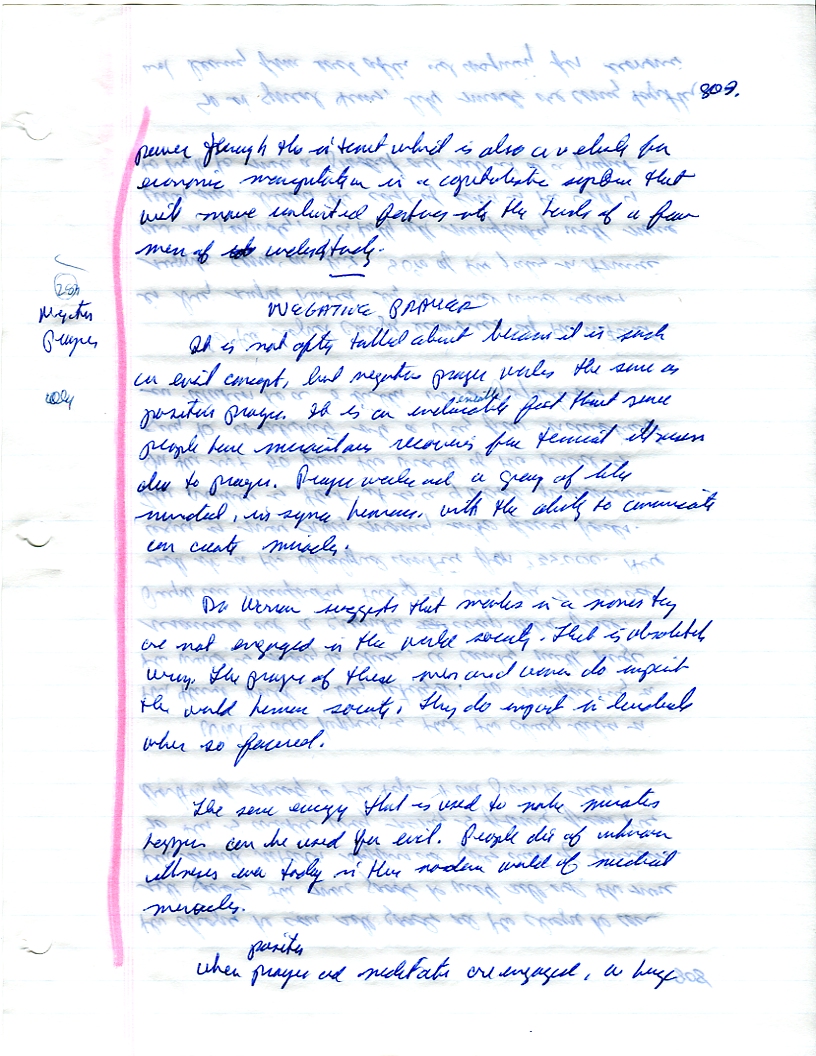 809.
power through the internet which is also a vehicle for
economic manipulation in a capitalistic system that
will move unlimited fortunes into the hands of a few
men of not understudy.
Negative
Prayer
only
NEGATIVE PRAYER
It is not often talked about because it is such
an evil concept, but negative prayer works the same as
positive prayer. It is an fact that some
people have miraculous recoveries from terminal illnesses
due to prayer. Prayer works and a group of like
minded, in sync humans, with the ability to communicate
can create miracles.
Dr suggests that monks in a monestery
are not engaged in the world society. That is absolutely
wrong. The prayer of these men and women do impact
the world human society. They do impact individuals
when so focused.
The same energy that is used to make miracles
happen can be used for evil. People die of unknown
illnesses even today in this modern world of medical
miracles.
When positive prayer and meditation are engaged, a huge